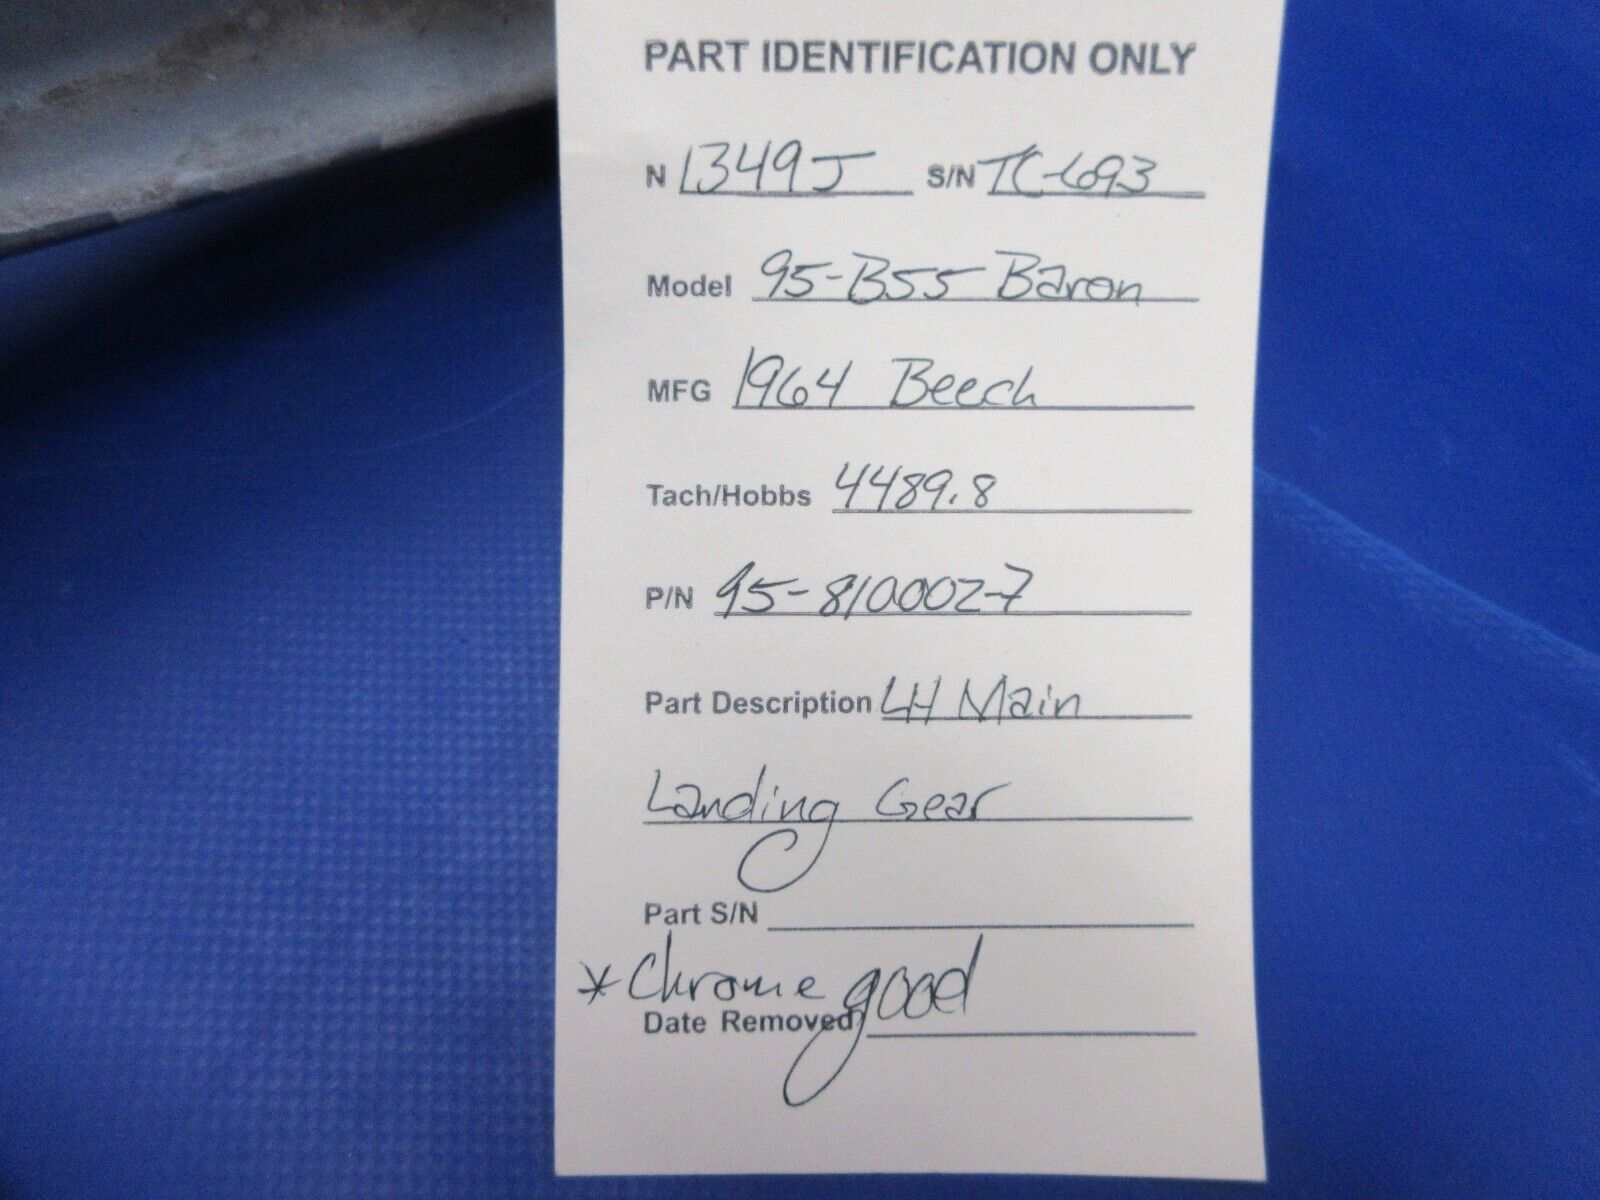 PART IDENTIFICATION ONLY
N 1349J S/N TC-693
Model 95-B55 Baron
MFG 1964 Beech
Tach/Hobbs 4489.8
P/N 95-810002-7
Part Description LH Main
Landing Gear
Part S/N
* Chrome good
Date Removed